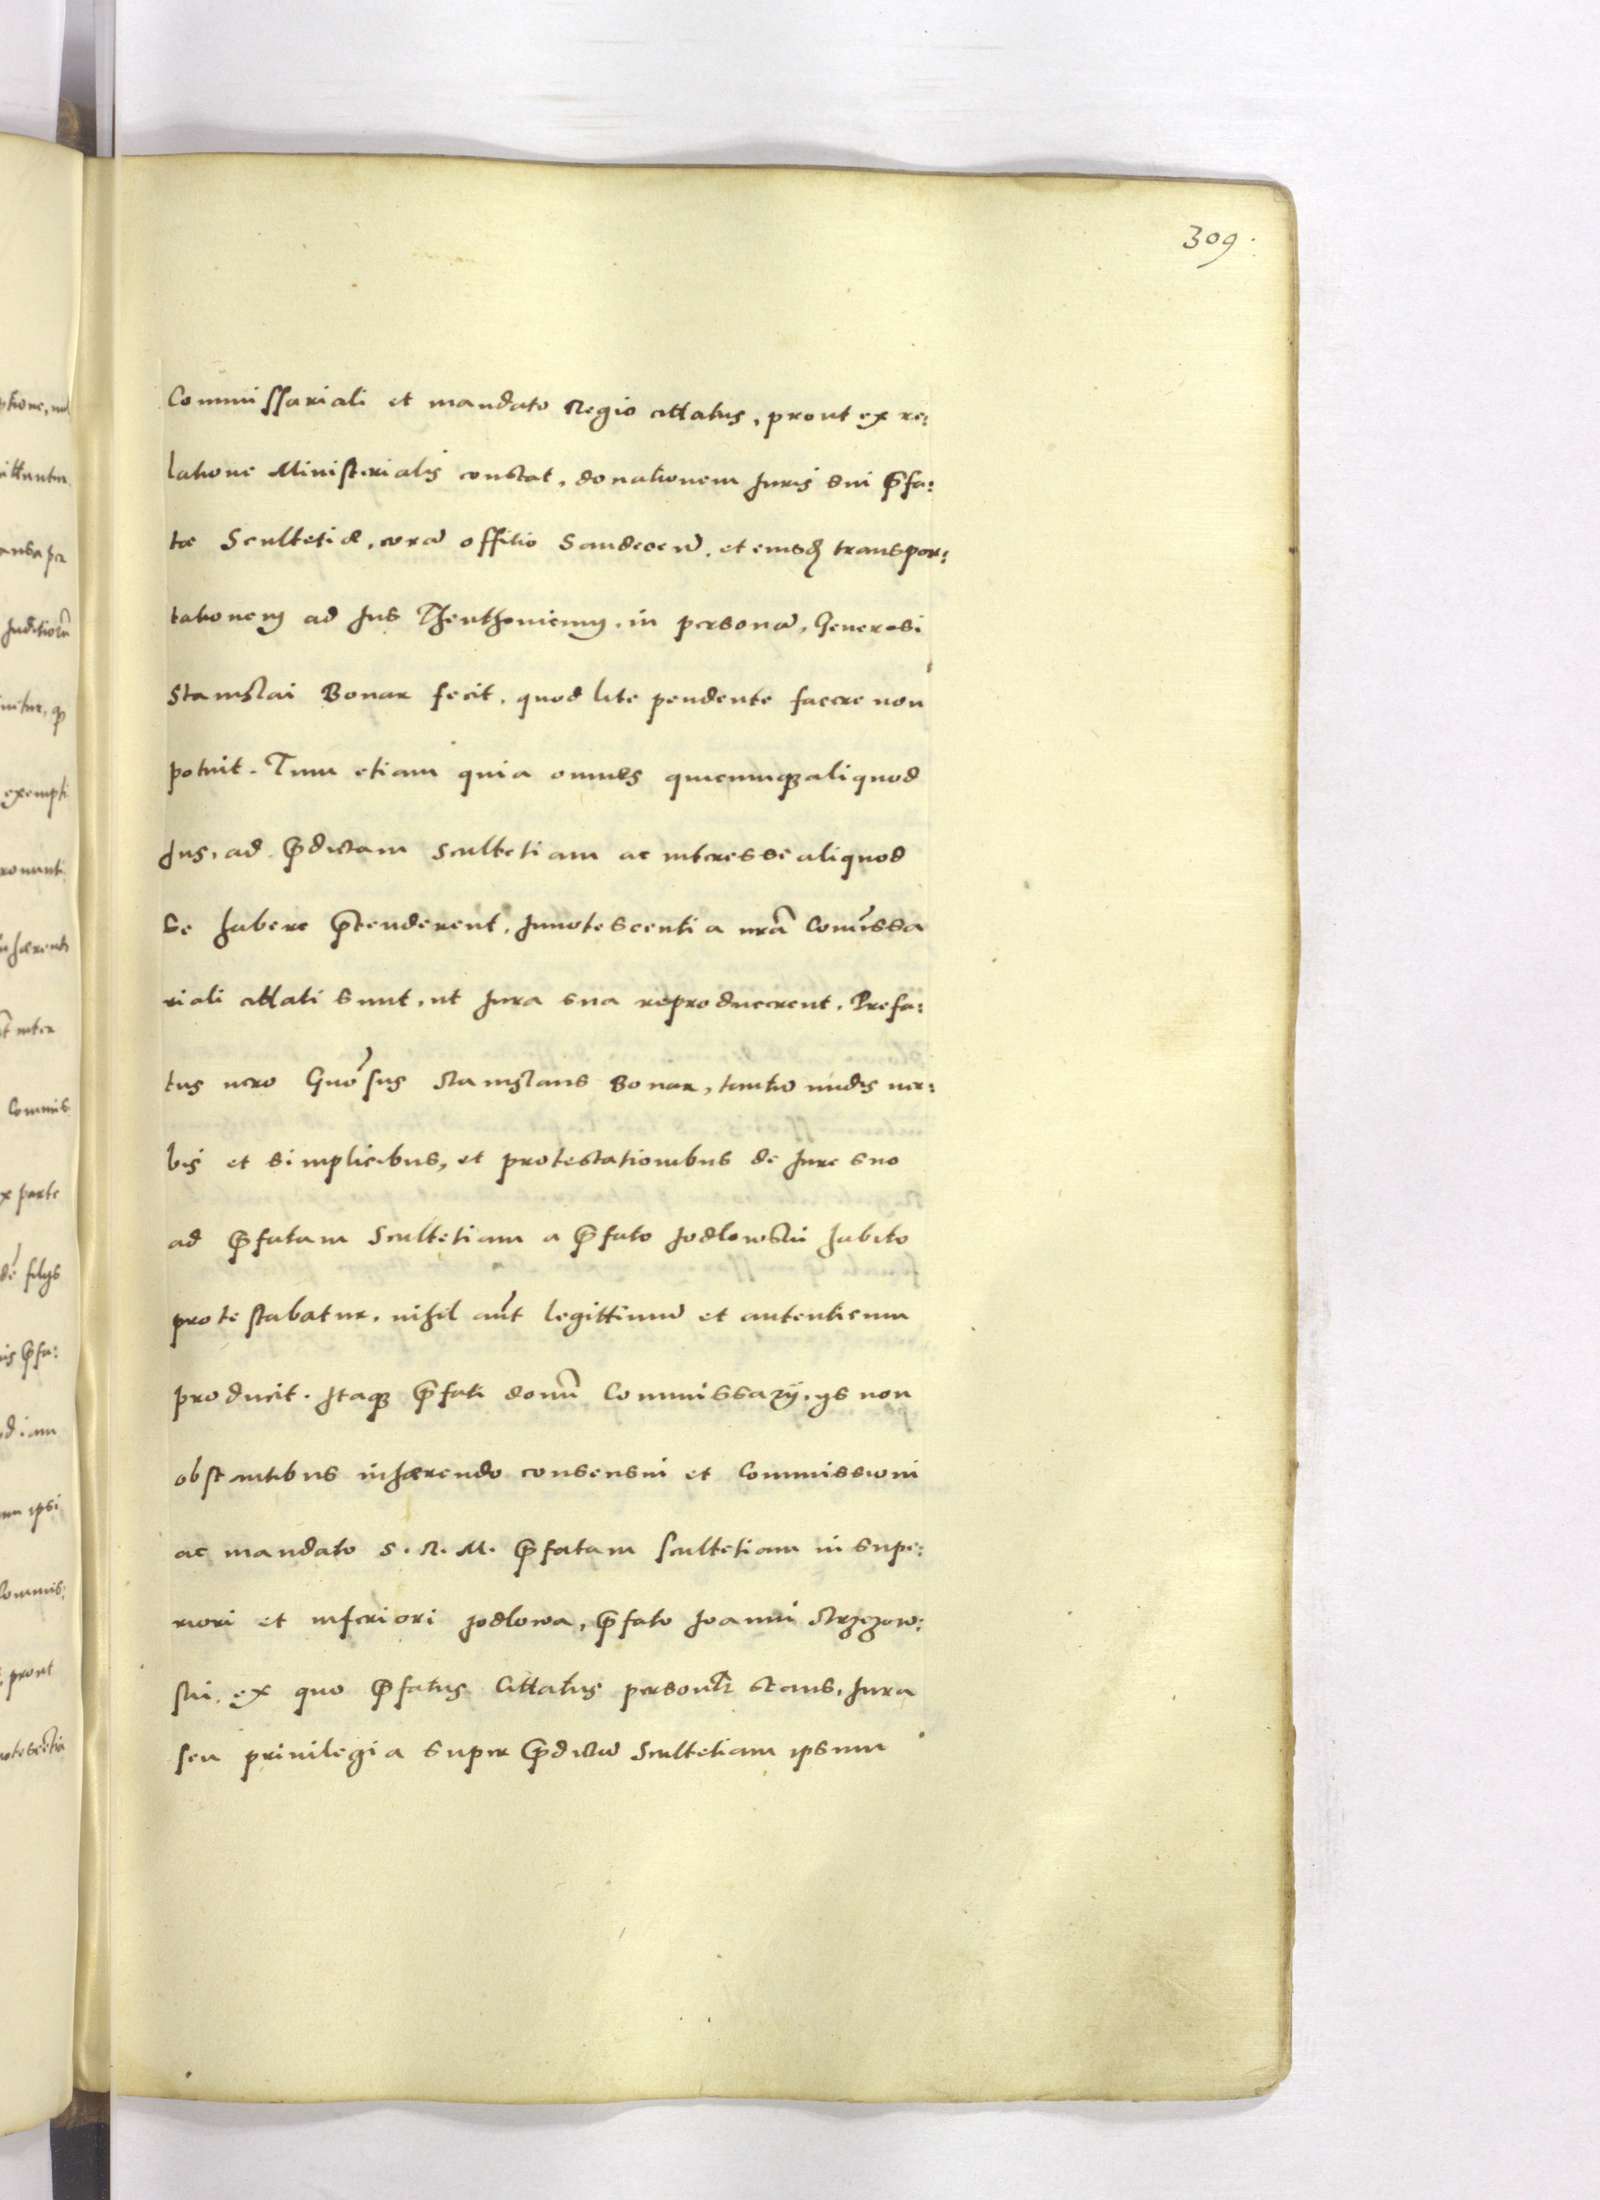 309.
Commissariali et mandato Regio citatus, prout ex re:
latione Ministerialis constat, donationem Juris sui p̃fa:
tæ Scultetiæ, corã offitio Sandecen̄, et eiusdẽ transpor:
tationem ad Jus Theuthonicum, in personã, Generosi
Stanislai Bonar fecit, quod lite pendente facere non
potuit. Tum etiam quia omnes quicunq; aliquod
Jus, ad p̃dictam Scultetiam ac interesse aliquod
se habere p̃tenderent, Innotescentia nr̃a Com̃issa
riali citati sunt, ut Jura sua reproducerent. Prefa:
tus uero Gñosus Stanislaus Bonar, tantũ nudis uer:
bis et simplicibus, et protestationibus de Jure suo
ad p̃fatam Scultetiam a p̃fato Jodlowski habito
protestabatur, nihil aũt legittimũ et autenticum
producit. Itaq; p̃fati domĩ Commissarij, ijs non
obstantibus inhærendo consensui et Commissioni
ac mandato S. R. M. p̃fatam scultetiam in supe:
riori et inferiori Jodlowa, p̃fato Joanni Strzezow:
ski, ex quo p̃fatus Citatus personlĩ stans, Jura
seu priuilegia super p̃dictã Scultetiam ipsum